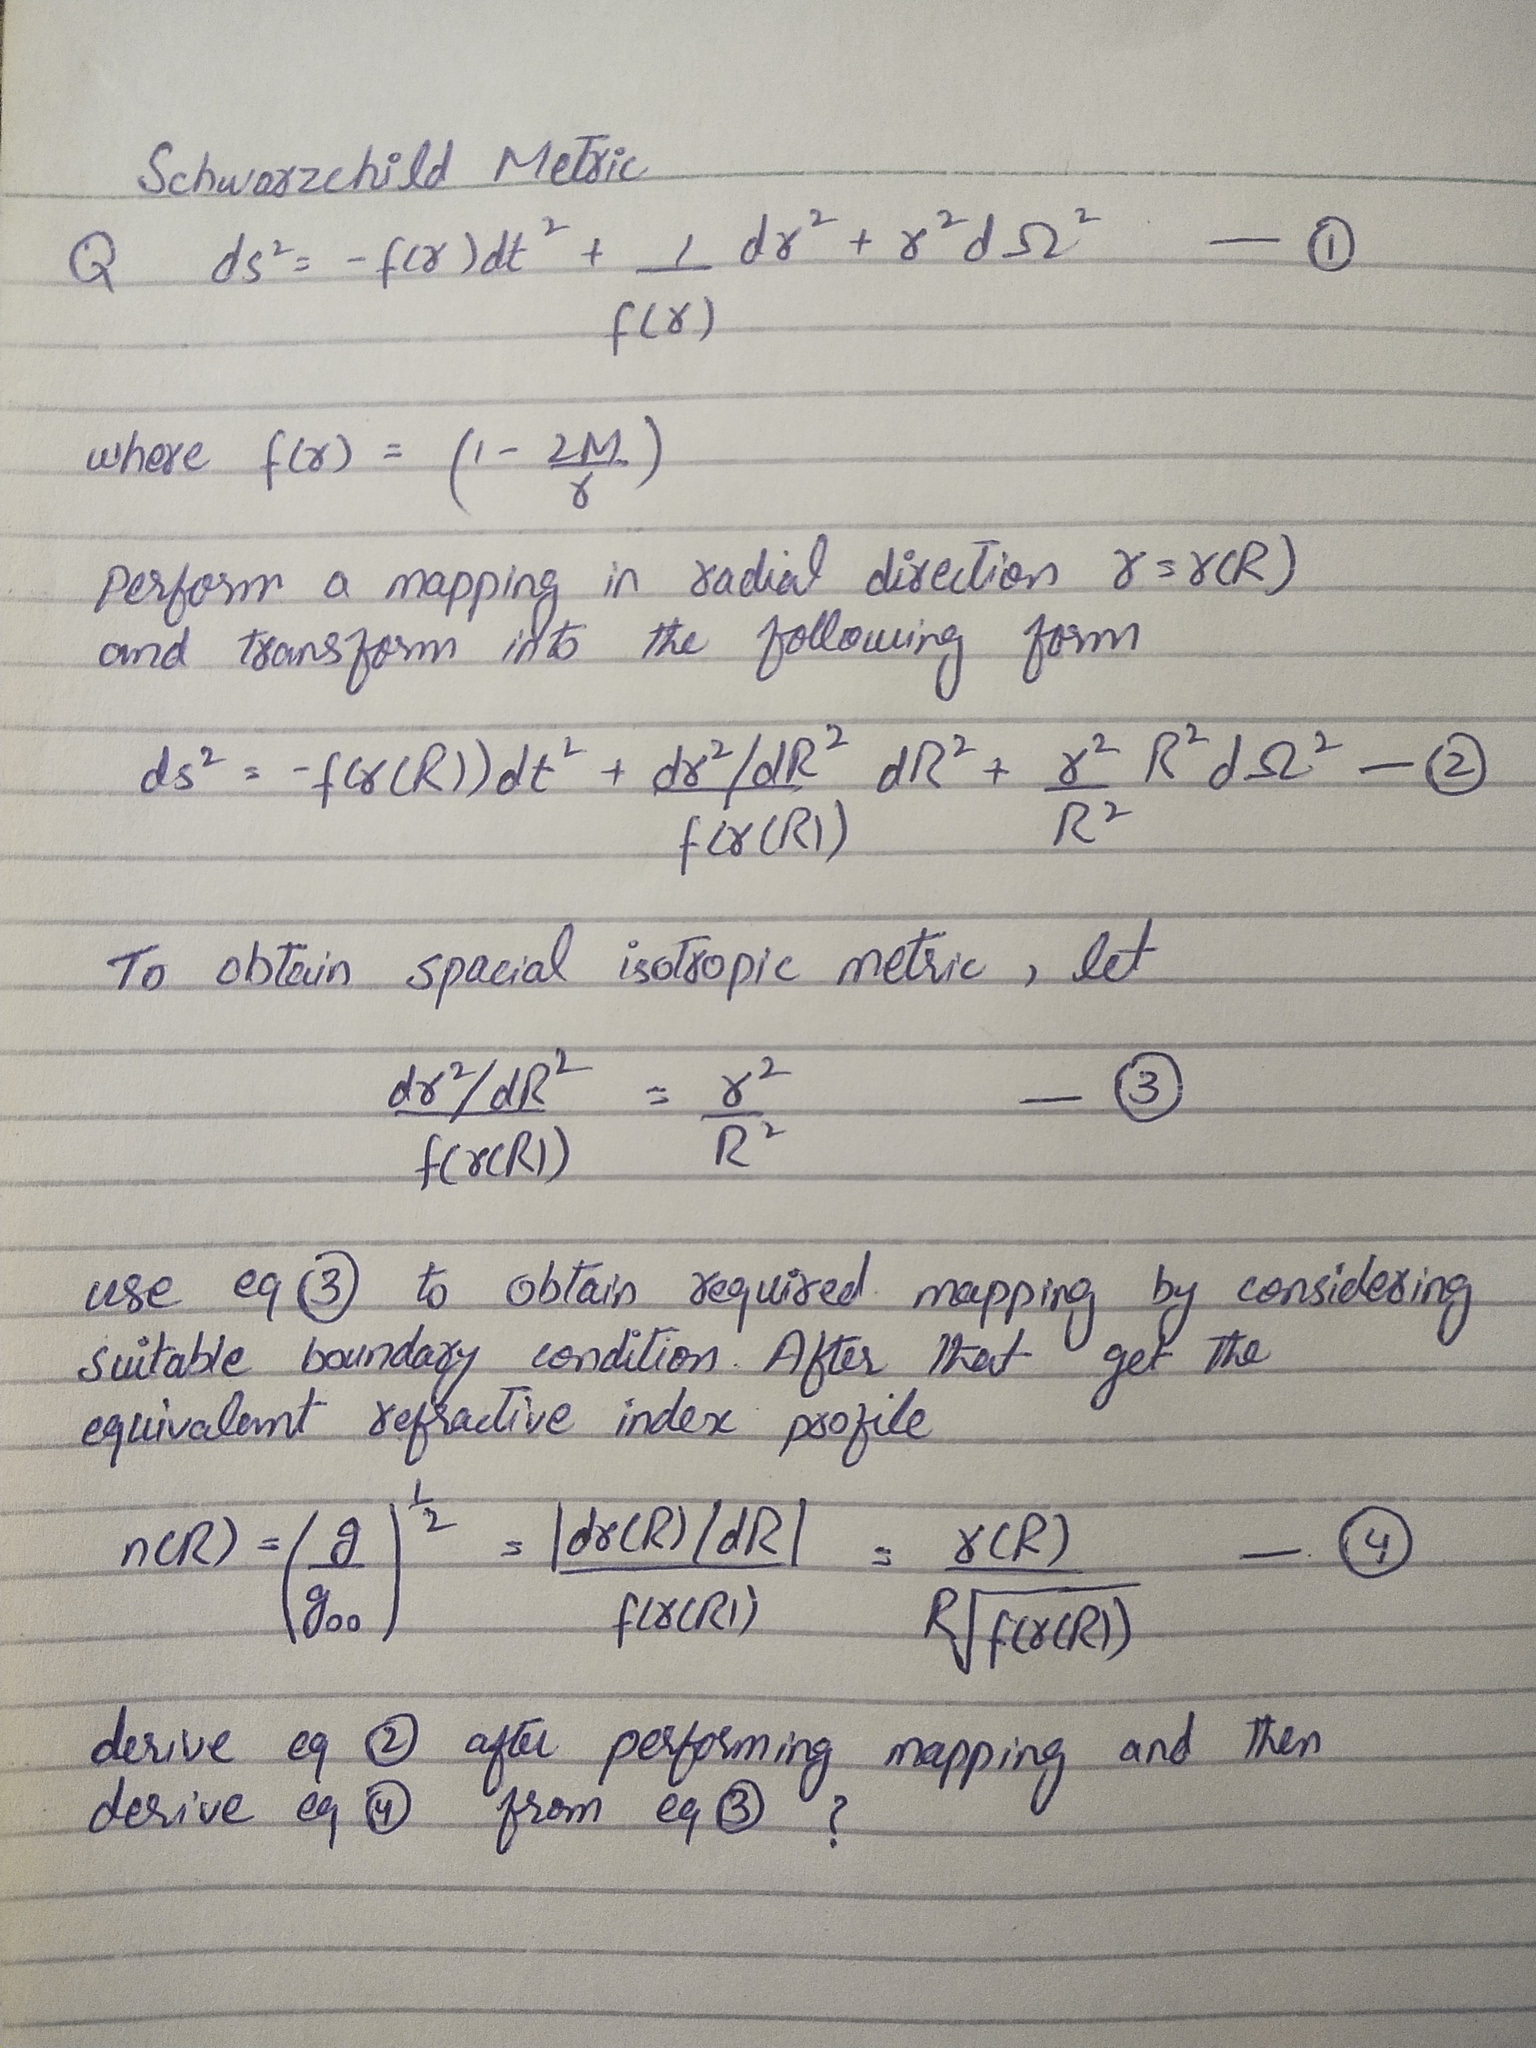 Schwarzchild Metric
Q ds² = -f(r)dt² + 1/f(r) dr² + r²dΩ² — ①
where f(r) = (1 - 2M/r)
Perform a mapping in radial direction r = r(R)
and transform into the following form
ds² = -f(r(R))dt² + (dr²/dR²)/f(r(R)) dR² + r²/R² R²dΩ² — ②
To obtain spacial isotropic metric, let
(dr²/dR²)/f(r(R)) = r²/R² — ③
use eq ③ to obtain required mapping by considering
suitable boundary condition. After that get the
equivalent refractive index profile
n(R) = (g/g₀₀)^½ = |dr(R)/dR|/f(r(R)) = r(R)/R√f(r(R)) — ④
derive eq ② after performing mapping and then
derive eq ④ from eq ③ ?